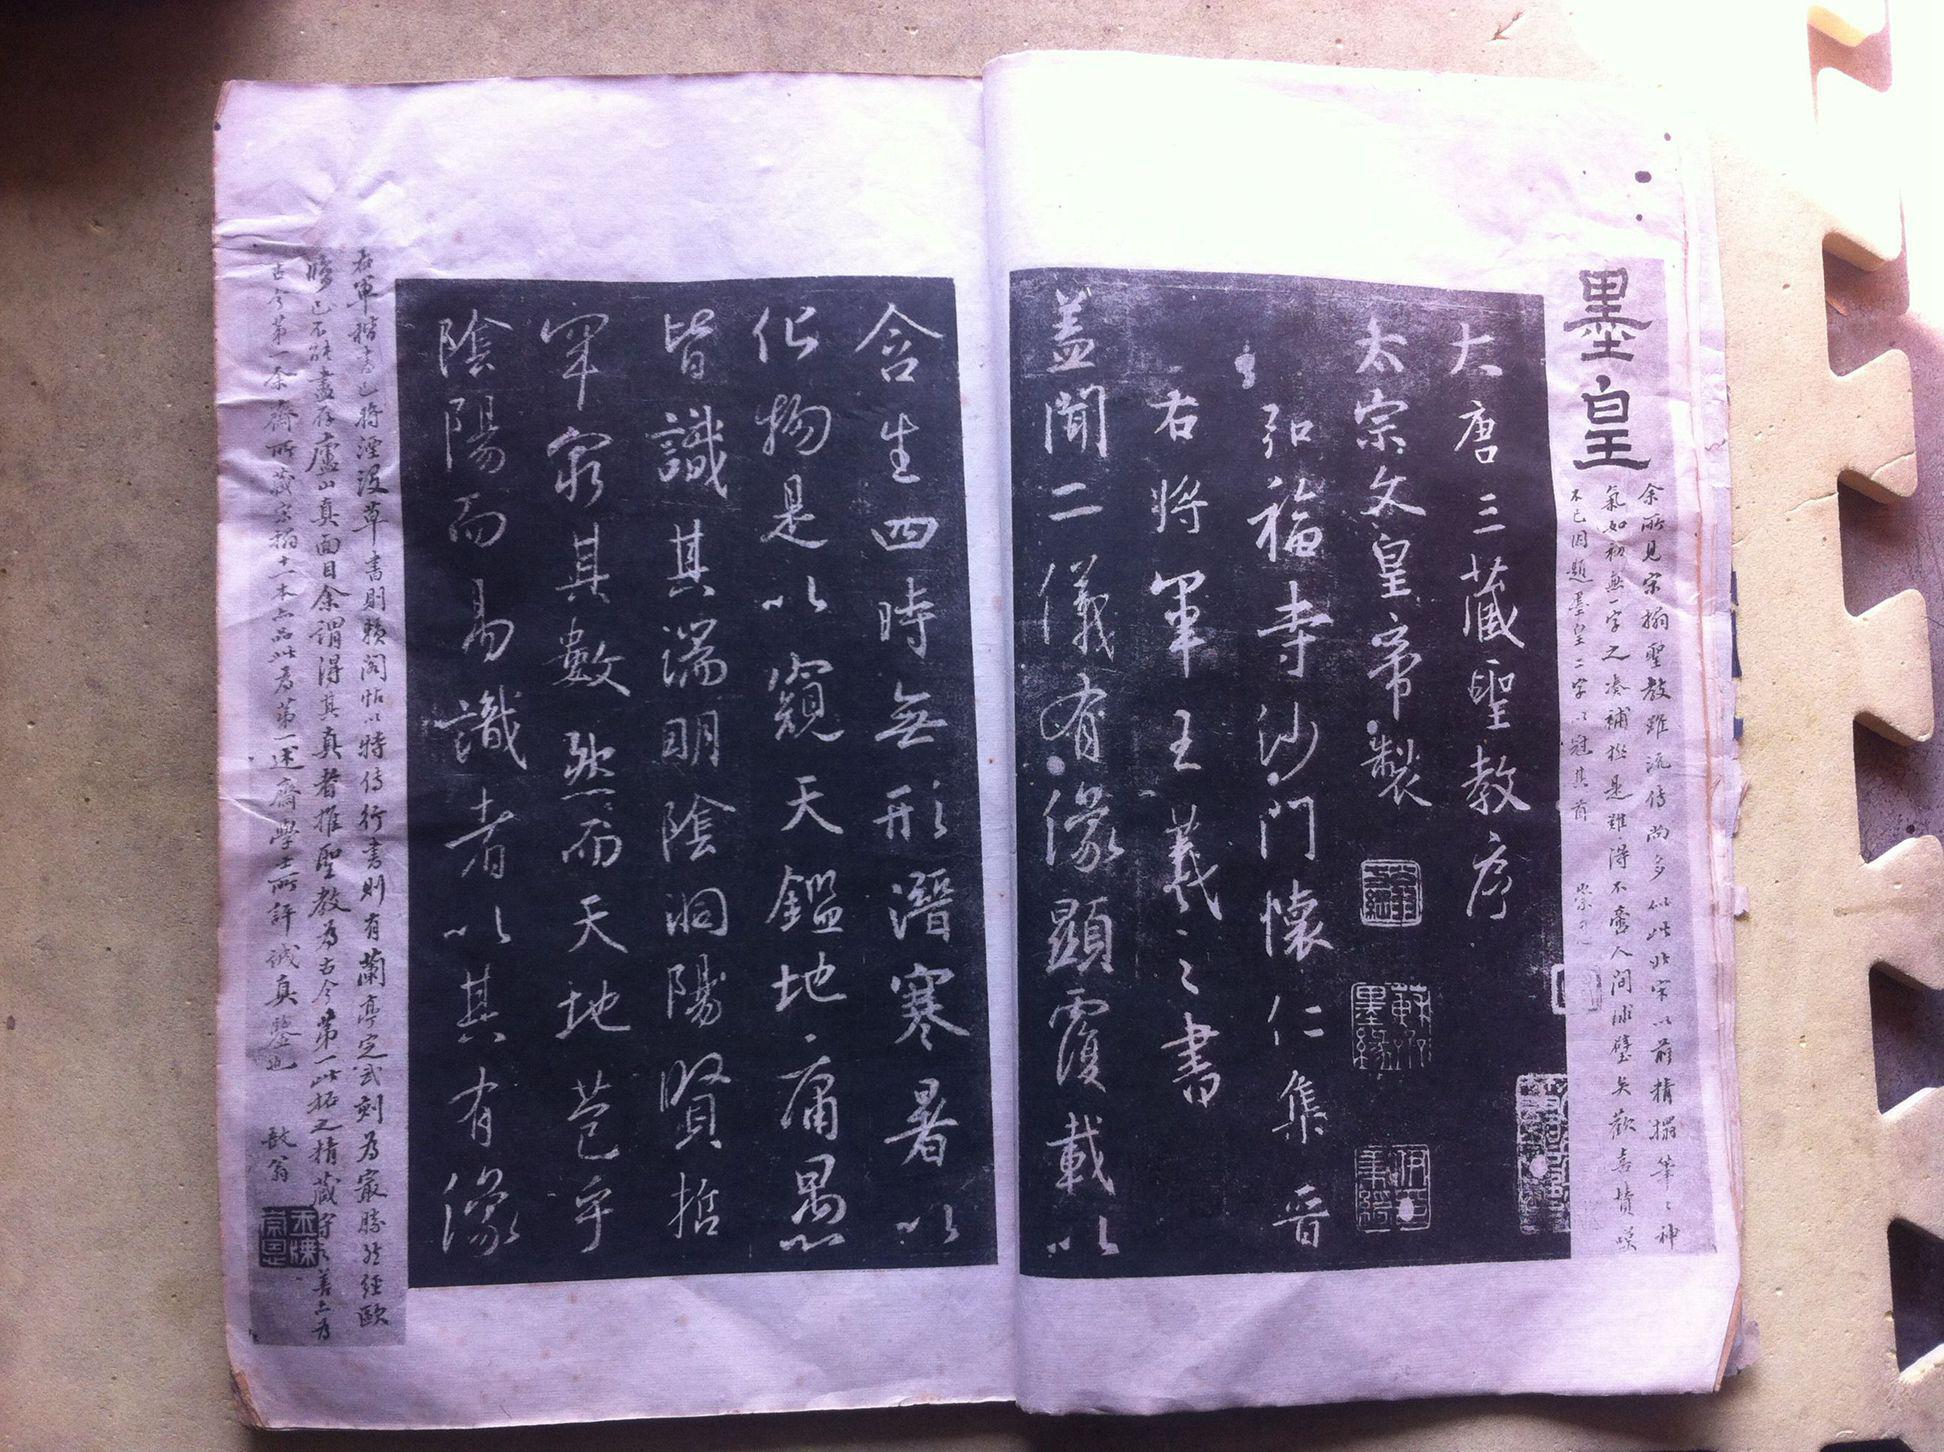 墨皇
余所見宋搨聖教雖流傳尚多似此北宋以前精搨筆〻神
氣如初無一字之湊補拓是難得不啻人間球璧矣歡喜贊嘆
不已因題墨皇二字以冠其首 崇恩
大唐三藏聖教序
太宗文皇帝製
弘福寺沙門懷仁集晉
右將軍王羲之書
蓋聞二儀有像顯覆載以
含生四時無形潛寒暑以
化物是以窺天鑑地庸愚
皆識其端明陰洞陽賢哲
罕窮其數然而天地苞乎
陰陽而易識者以其有像
蘇鄰
墨緣
右軍楷書已將湮沒草書則賴閣帖以特傳行書則有蘭亭定武刻為最勝然經歐
臨已不能盡存廬山真面目余謂得其真者推聖教為古今第一此拓之精藏字之善亦為
古今第一余齋所藏宋搨十一本亦品此為第一述齋學士所評誠真鑒也 敔翁